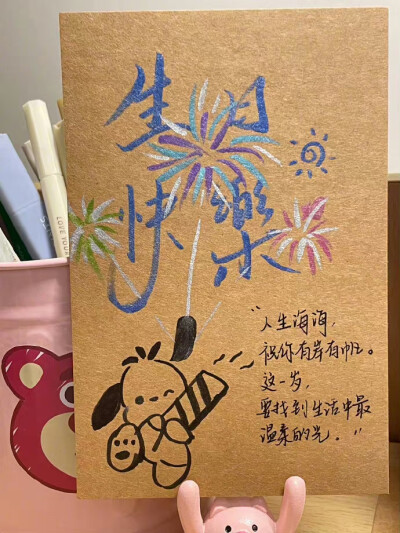 生日
快樂
“人生海海，
祝你有岸有帆。
这一岁，
要找到生活中最
温柔的光。”
LOVE YOU